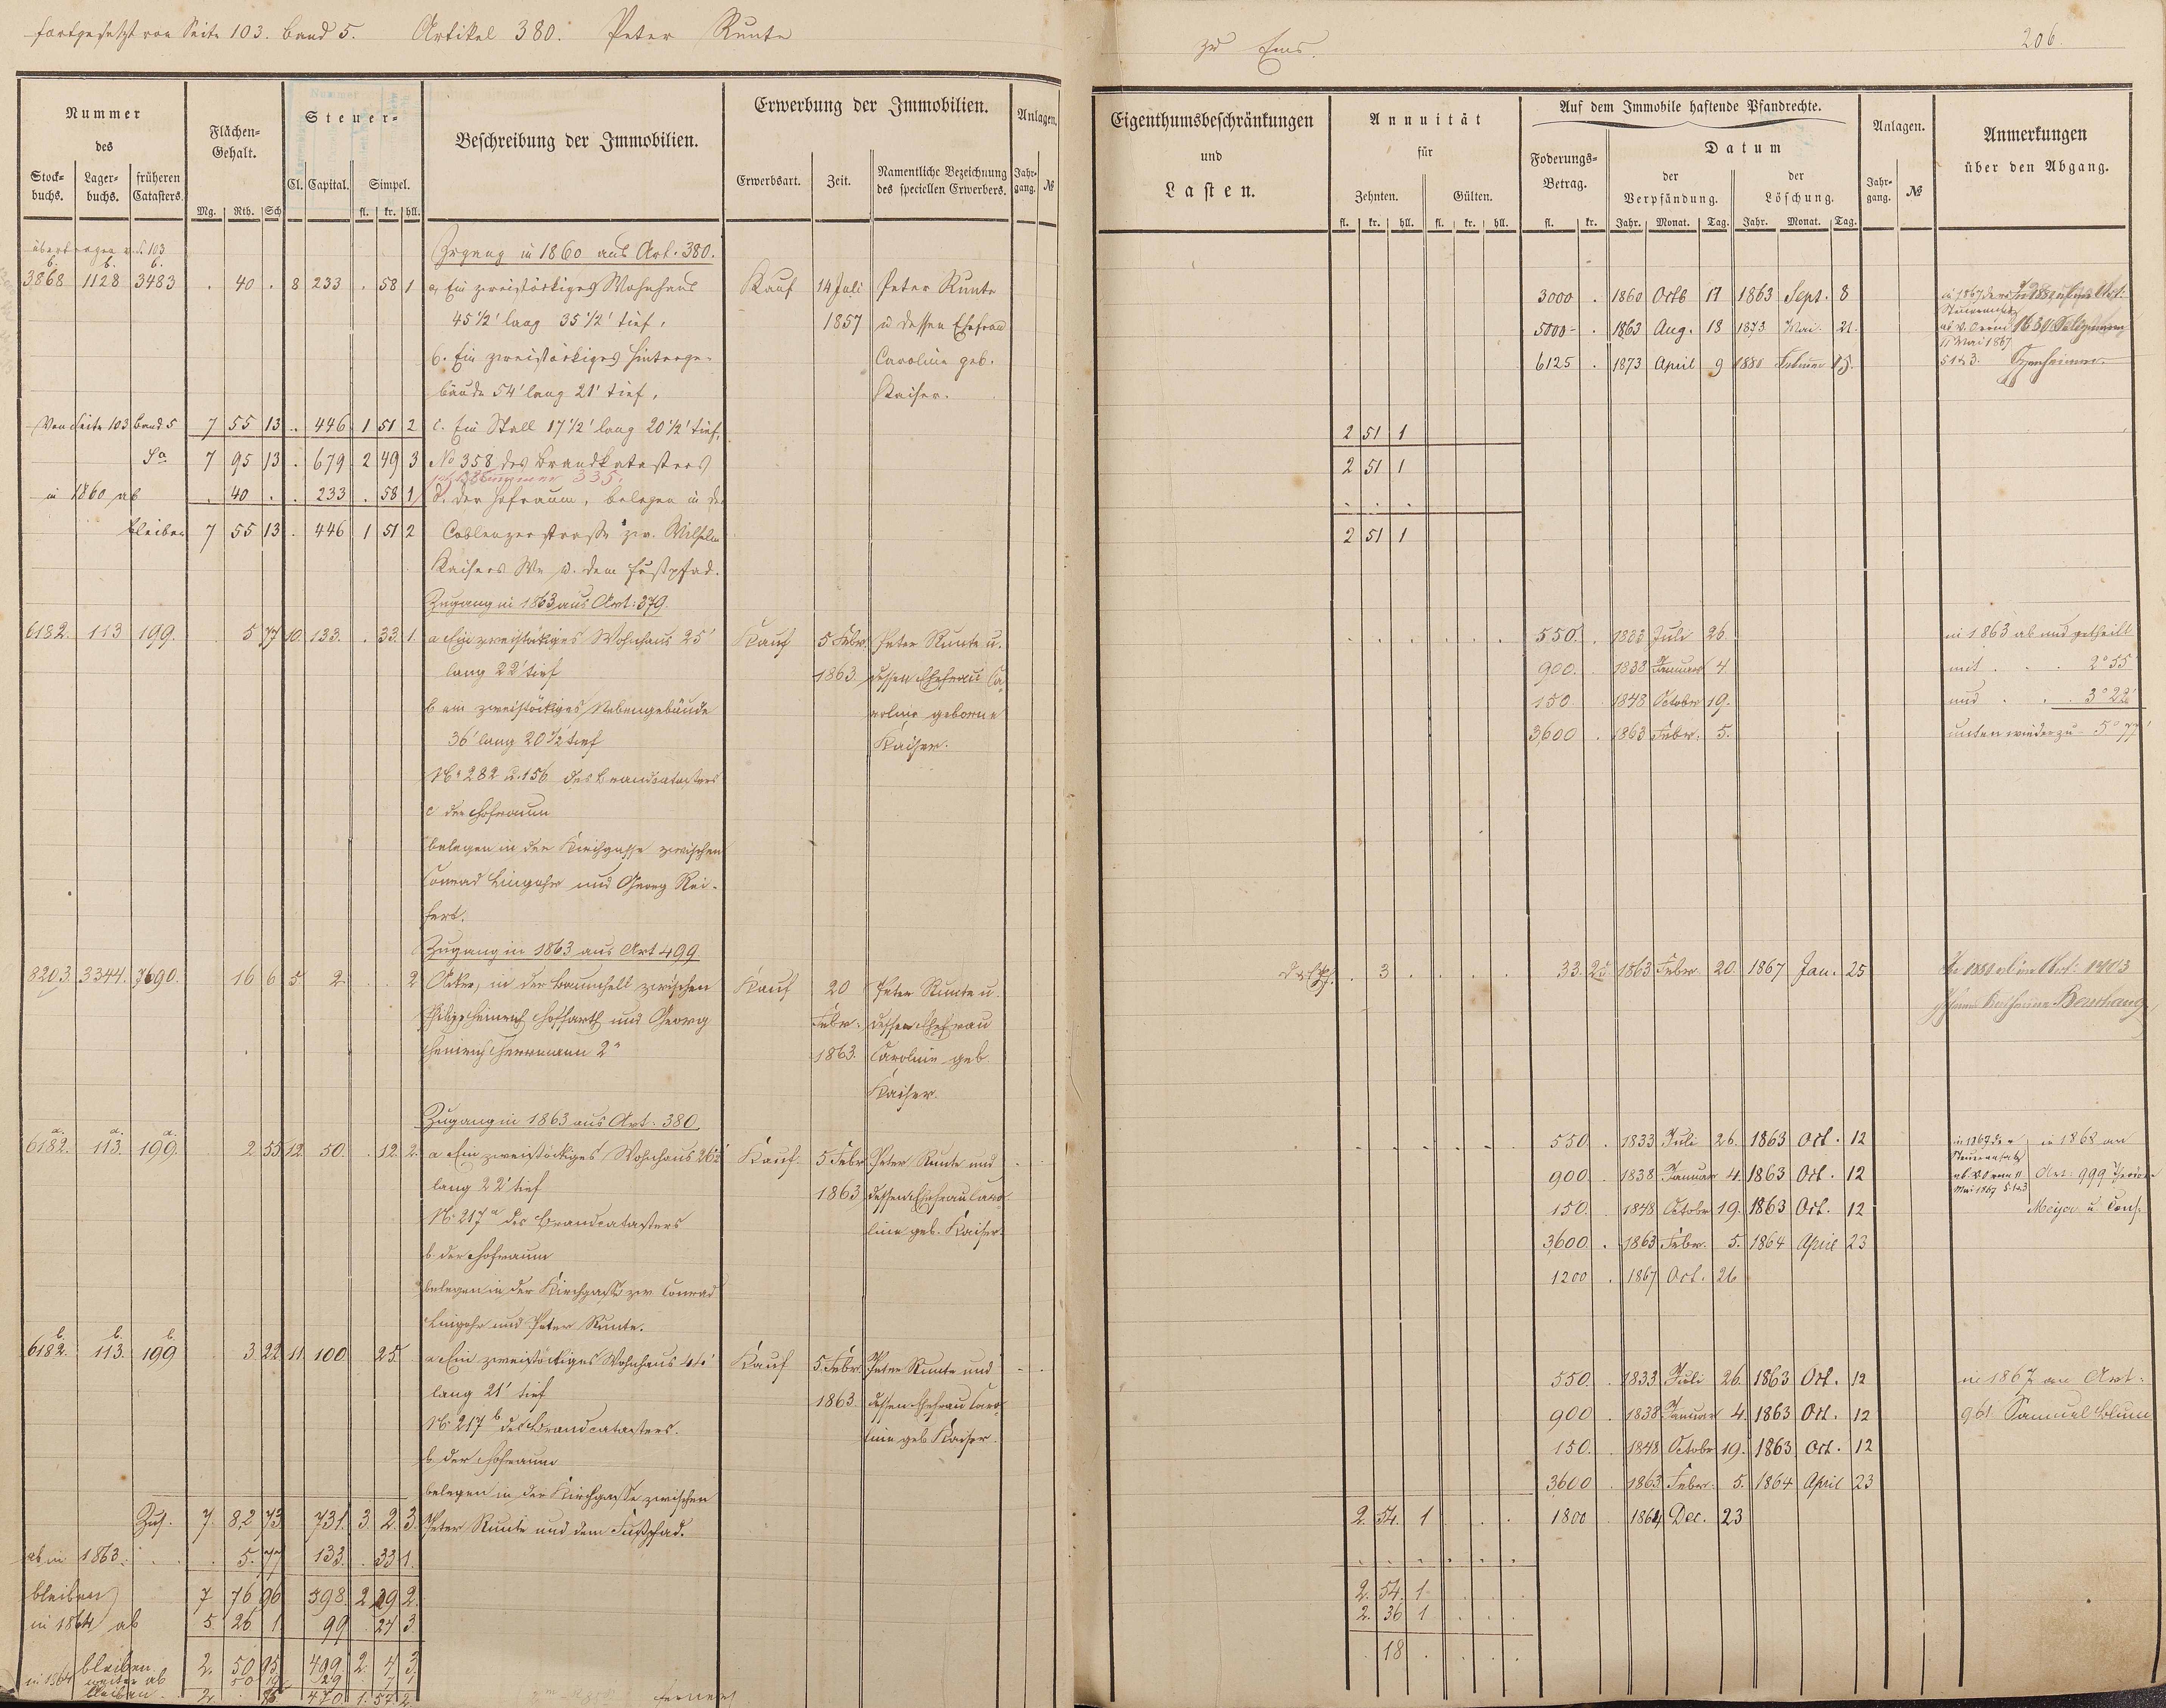 fortgesetzt von Seite 103. Band 5. Artikel 380. Peter Runte
zu Ems.
206.
Nummer
des
Stock-
buchs.
Lager-
buchs.
früheren
Catasters.
Flächen-
Gehalt.
Mg. Rth. Sch
Steuer-
Cl. Capital. Simpel.
fl. kr. hll.
Beschreibung der Immobilien.
Erwerbung der Immobilien.
Erwerbsart. Zeit.
Namentliche Bezeichnung
des speciellen Erwerbers.
Anlagen.
Jahr-
gang. №
Eigenthumsbeschränkungen
und
Lasten.
Annuität
für
Zehnten. Gülten.
fl. kr. hll. fl. kr. hll.
Auf dem Immobile haftende Pfandrechte.
Foderungs-
Betrag.
fl. kr.
Datum
der
Verpfändung.
der
Löschung.
Jahr. Monat. Tag. Jahr. Monat. Tag.
Anlagen.
Jahr-
gang. №
Anmerkungen
über den Abgang.
übertragen v. S. 103
Zugang in 1860 aus Art. 380.
b. b. b.
3868 1128 3483 . 40 . 8 233 . 58 1 a. Ein zweistöckiges Wohnhaus Kauf 14 Juli Peter Runte
45 1/2' lang 35 1/2' tief, 1857 u dessen Ehefrau
b. Ein zweistöckiges Hinterge- Caroline geb.
bäude 54' lang 21' tief, Kaiser.
3000 . 1860 Octb 17 1863 Sept. 8
5000 - . 1863 Aug. 13 1873 Mai 21.
6125 . 1873 April 9 1880 Februar 15.
11 Mai 1867
Von Seite 103 Band 5 7 55 13 . 446 1 51 2 c. Ein Stall 17 1/2' lang 20 1/2' tief, 2 51 1
Sa 7 95 13 . 679 2 49 3 No 358 des Brandkatasters 2 51 1
335.
in 1860 ab . 40 . . 233 . 58 1 d. der Hofraum, belegen in der . . .
bleiben 7 55 13 . 446 1 51 2 Coblenzerstrasse zw. Wilhelm 2 51 1
Kaisers We u. dem Fußpfad.
Zugang in 1863 aus Art: 379.
6182. 113 199. . 5 77 10. 133. . 33. 1. a Ein zweistöckiges Wohnhaus 25' Kauf 5 Febr. Peter Runte u.
lang 22' tief 1863. dessen Ehefrau Ca-
b ein zweistöckiges Nebengebäude roline geborne
36' lang 20 1/2' tief Kaiser.
No 282 u. 156 des Brandcatasters
c der Hofraum
belegen in der Kirchgasse zwischen
Conrad Lingohr und Georg Rei-
fert.
550. . 1833 Juli 26. in 1863 ab und getheilt
900. . 1838 Januar 4. mit . . 2° 55
150 1848 October 19. und . . 3° 22'
3600 . 1863 Febr. 5. unten wieder zu 5° 77'
Zugang in 1863 aus Art 499
8203. 3344. 7690. 16 6 5 2 . . 2 Acker, in der Baumhell zwischen Kauf 20 Peter Runte u.
Philipp Heinrich Hoffarth und Georg Febr. dessen Ehefrau
Heinrich Herrmann 2r 1863. Caroline geb.
Kaiser.
. 3 . . . . 33. 20 1863 Febr. 20. 1867 Jan. 25
Zugang in 1863 aus Art. 380
a. a. a.
6182. 113. 199. 2 55 12 50 . 12 2. a Ein zweistöckiges Wohnhaus 26 1/2' Kauf. 5 Febr Peter Runte und
lang 22' tief 1863 dessen Ehefrau Caro-
No 217a des Brandcatasters line geb. Kaiser.
b. der Hofraum
belegen in der Kirchgasse zw Conrad
Lingohr und Peter Runte.
550 . 1833 Juli 26. 1863 Oct. 12
900. . 1838 Januar 4. 1863 Oct. 12
150. . 1848 October 19. 1863 Oct. 12
3600. . 1863 Febr. 5. 1864 April 23
1200 . 1867 Oct. 26
in 1868 an
Art: 999
Meyer u Cons.
b. b. b.
6182. 113. 199 3 22 11 100 25. a Ein zweistöckiges Wohnhaus 44' Kauf 5. Febr. Peter Runte und
lang 21' tief 1863. dessen Ehefrau Caro-
No 217b des Brandcatasters. line geb Kaiser.
b der Hofraum
belegen in der Kirchgasse zwischen
Peter Runte und dem Fußpfad.
550. . 1833 Juli 26. 1863 Oct. 12 in 1867 an Art:
900 . 1838 Januar 4. 1863 Oct. 12 961 Samuel Blum
150. . 1848 Octobr 19. 1863 Oct. 12
3600 . 1863 Febr. 5. 1864 April 23
1800 . 1864 Dec. 23
Zus. 7. 82 73 731. 3. 2. 3. 2. 54. 1
ab in 1863. . . . 5. 77 133. . 33 1.
bleiben 7 76 96 598. 2 29 2. 2. 54. 1
in 1864 ab 5. 26 1 99 24 3 2. 36 1
bleiben 2. 50 95 499. 2. 4 3. . 18
in 1864 weiter ab
bleiben 470. 1. 57. 2. ferner